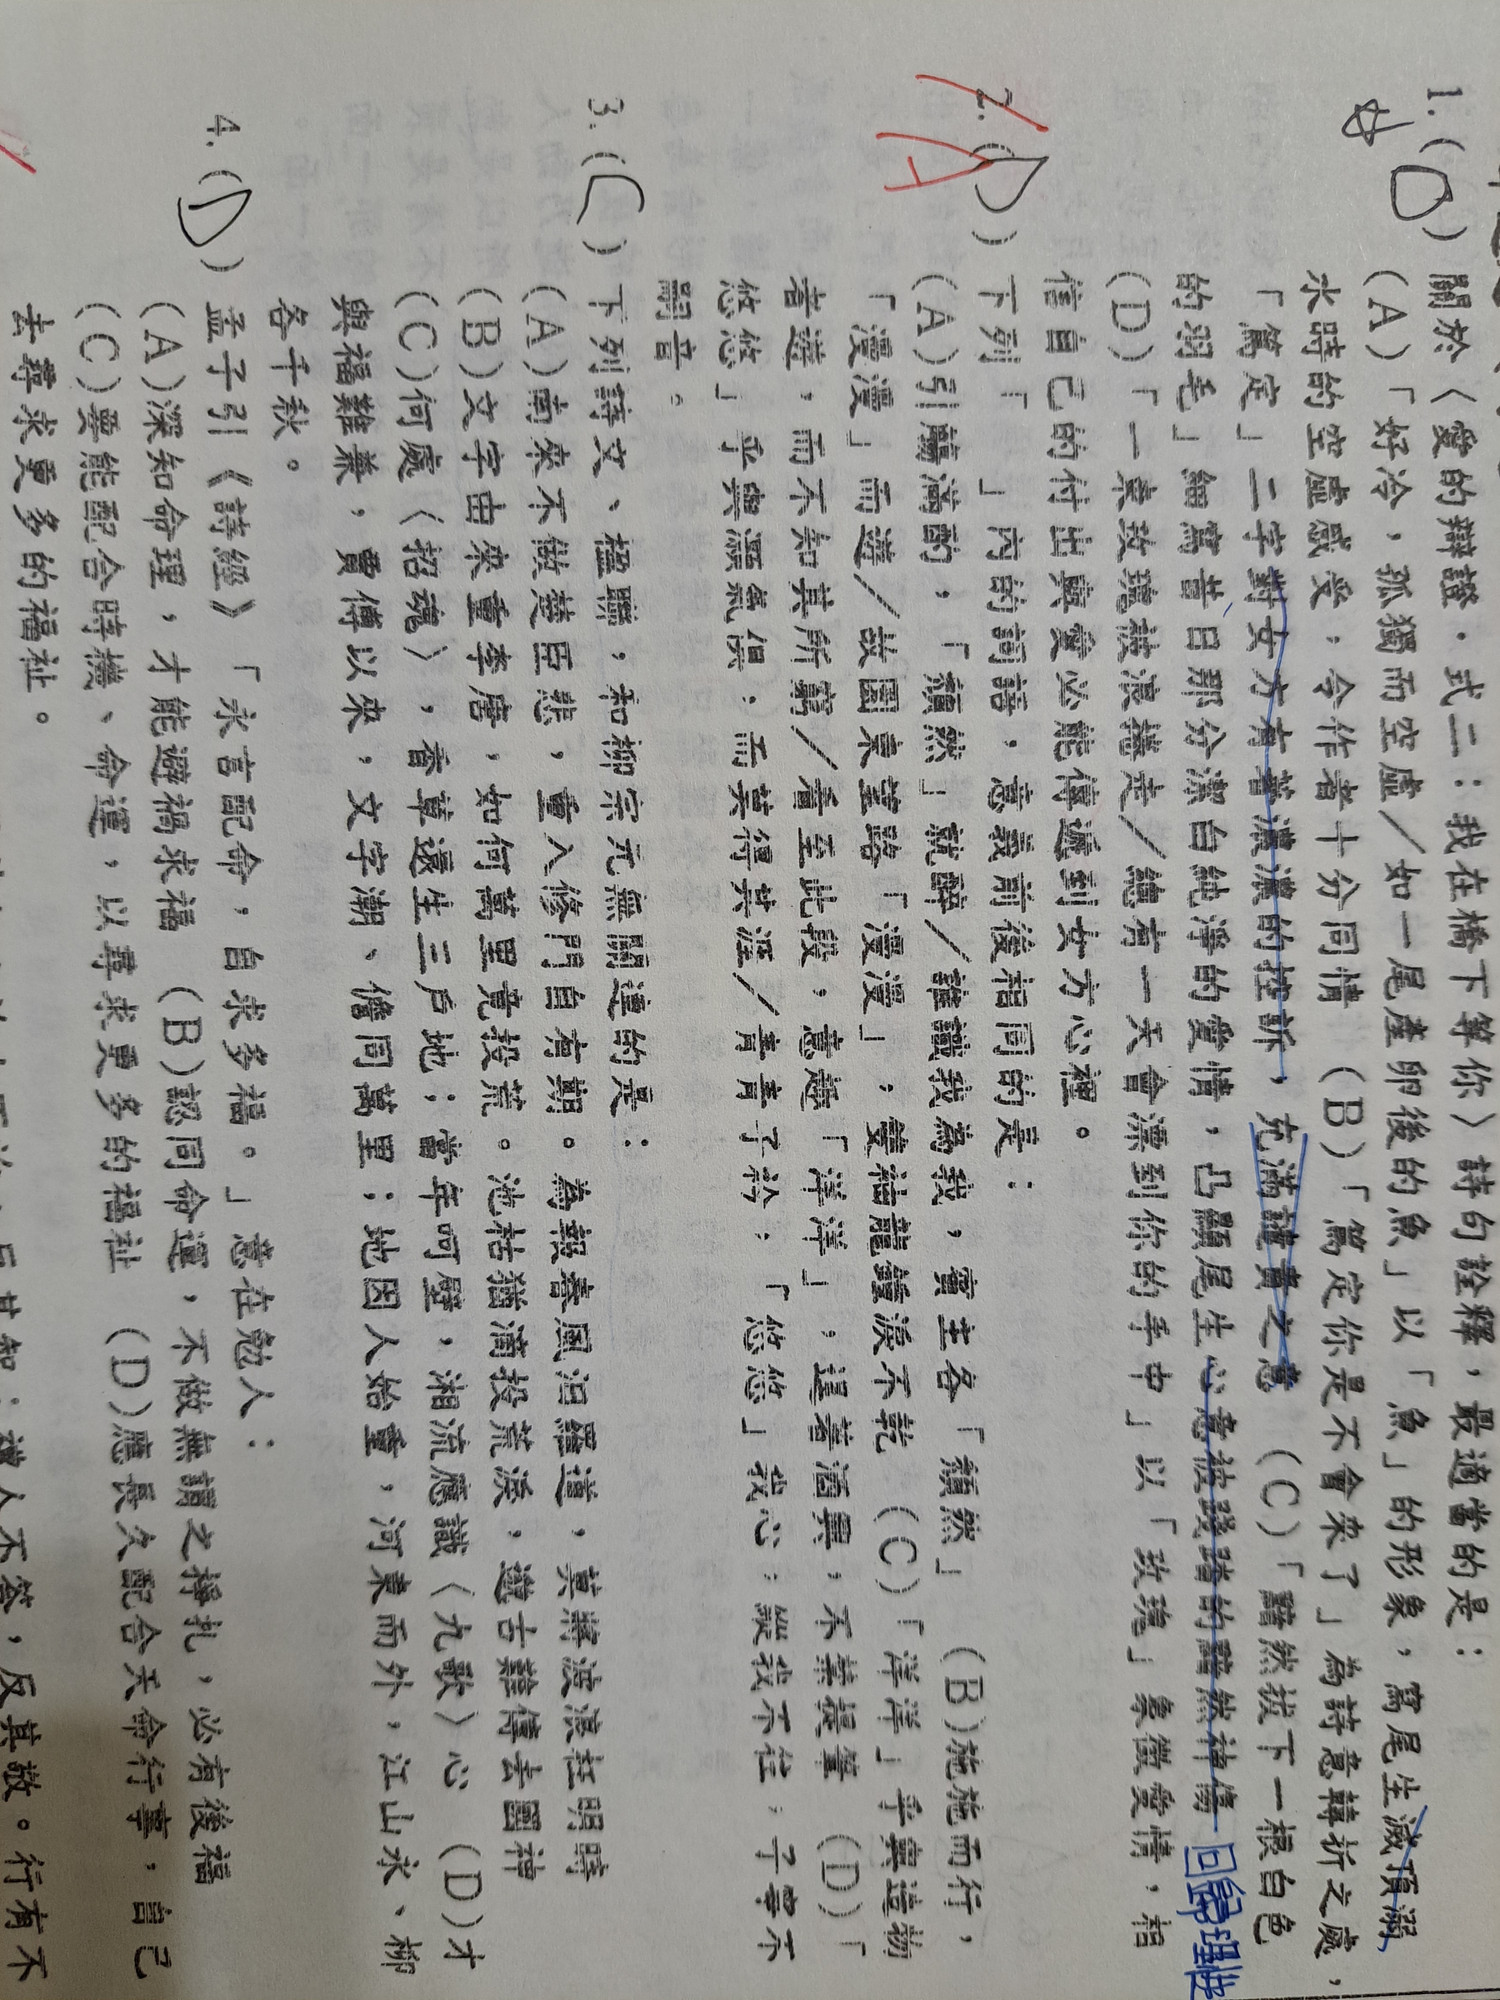 1.(D)關於〈愛的辯證．式二：我在橋下等你〉詩句詮釋，最適當的是：
(A)「好冷，孤獨而空虛／如一尾產卵後的魚」以「魚」的形象，寫尾生滅頂溺
水時的空虛感受，令作者十分同情　(B)「篤定你是不會來了」為詩意轉折之處，
「篤定」二字對女方有著濃濃的控訴，充滿譴責之意　(C)「黯然拔下一根白色
的羽毛」細寫昔日那分潔白純淨的愛情，凸顯尾生心意被踐踏的黯然神傷 回歸理性
(D)「一束玫瑰被浪捲走／總有一天會漂到你的手中」以「玫瑰」象徵愛情，相
信自己的付出與愛必能傳遞到女方心裡。
2.(D)下列「　」內的詞語，意義前後相同的是：
A
(A)引觴滿酌，「頹然」就醉／誰識我為我，賓主各「頹然」　(B)施施而行，
「漫漫」而遊／故園東望路「漫漫」，雙袖龍鍾淚不乾　(C)「洋洋」乎與造物
者遊，而不知其所窮／看至此段，意趣「洋洋」，逞著酒興，不禁提筆　(D)「
悠悠」乎與灝氣俱，而莫得其涯／青青子衿，「悠悠」我心，縱我不往，子寧不
嗣音。
3.(C)下列詩文、楹聯，和柳宗元無關連的是：
(A)南來不做楚臣悲，重入修門自有期。為報春風汨羅道，莫將波浪枉明時
(B)文字由來重李唐，如何萬里竟投荒。池枯猶滴投荒淚，邈古難傳去國神
(C)何處〈招魂〉，香草還生三戶地；當年呵壁，湘流應識〈九歌〉心　(D)才
與福難兼，賈傅以來，文字潮、儋同萬里；地因人始重，河東而外，江山永、柳
各千秋。
4.(D)孟子引《詩經》「永言配命，自求多福。」意在勉人：
(A)深知命理，才能避禍求福　(B)認同命運，不做無謂之掙扎，必有後福
(C)要能配合時機、命運，以尋求更多的福祉　(D)應長久配合天命行事，自己
去尋求更多的福祉。
禮人不答，反其敬。行有不